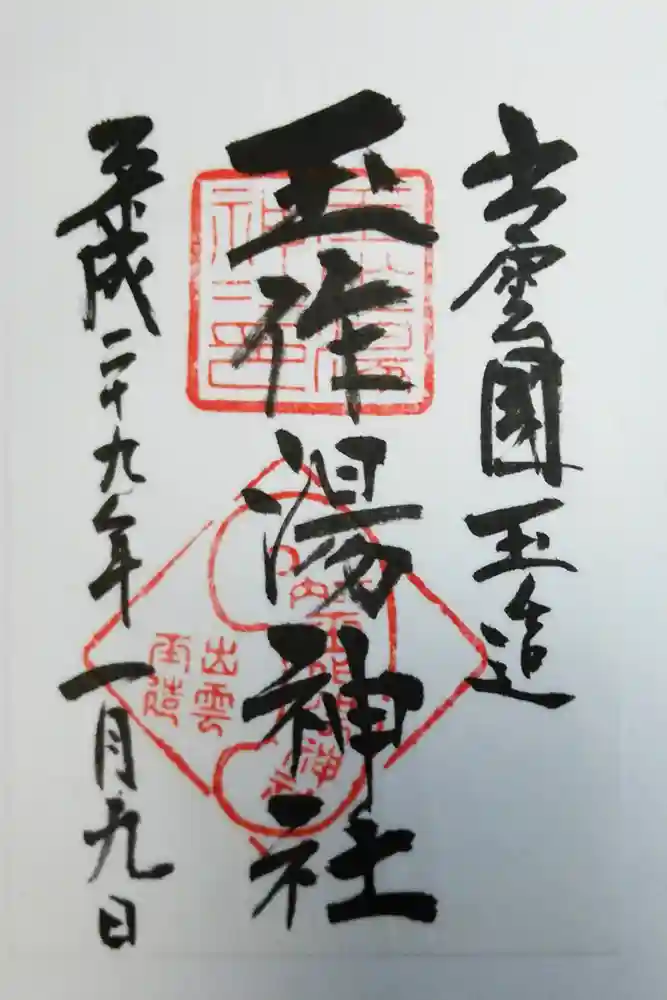 出雲國玉造
玉作湯神社
平成二十九年一月九日
出雲
玉造